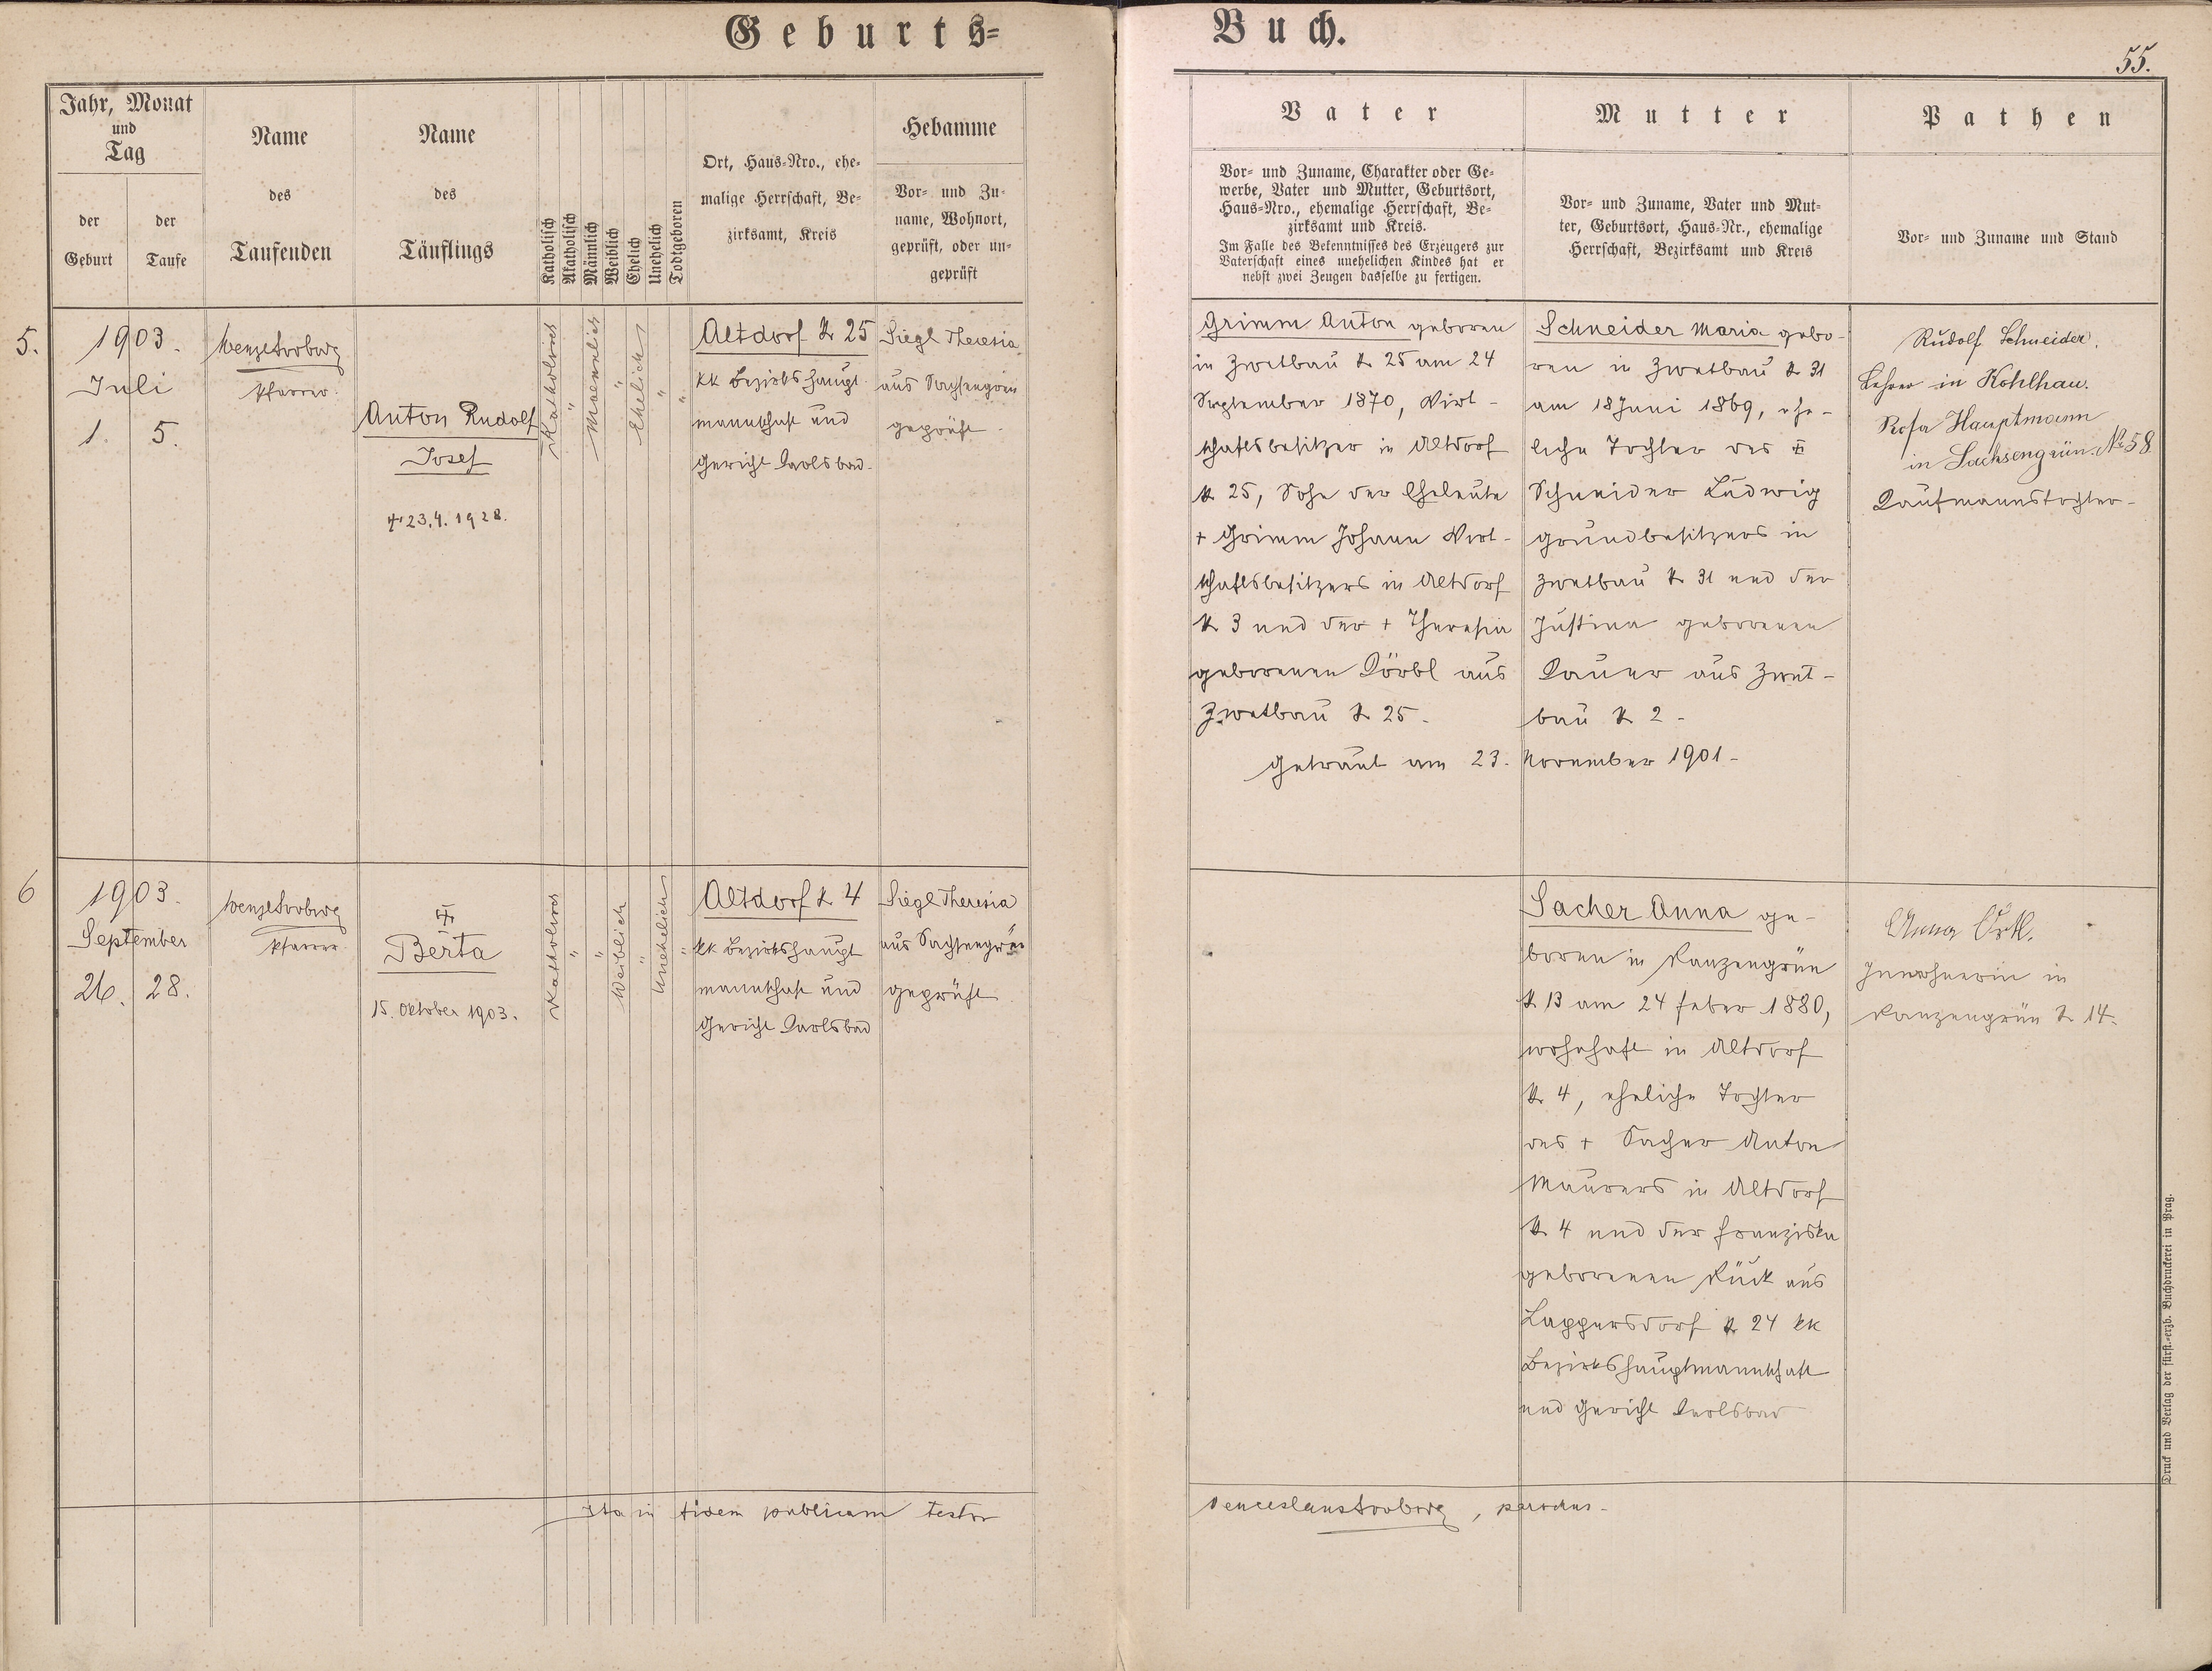 Geburts-
Buch.
55.
Jahr, Monat
und
Tag
der
Geburt
der
Taufe
Name
des
Taufenden
Name
des
Täuflings
Katholisch
Akatholisch
Männlich
Weiblich
Ehelich
Unehelich
Todtgeboren
Ort, Haus-Nro., ehe-
malige Herrschaft, Be-
zirksamt, Kreis
Hebamme
Vor- und Zu-
name, Wohnort,
geprüft, oder un-
geprüft
Vater
Vor- und Zuname, Charakter oder Ge-
werbe, Vater und Mutter, Geburtsort,
Haus-Nro., ehemalige Herrschaft, Be-
zirksamt und Kreis.
Im Falle des Bekenntnisses des Erzeugers zur
Vaterschaft eines unehelichen Kindes hat er
nebst zwei Zeugen dasselbe zu fertigen.
Mutter
Vor- und Zuname, Vater und Mut-
ter, Geburtsort, Haus-Nr., ehemalige
Herrschaft, Bezirksamt und Kreis
Pathen
Vor- und Zuname und Stand
5.
1903.
Juli
1. 5.
Wenzel
Pfarrer.
Anton Rudolf
Josef
23.4.1928.
Katholisch
"
Maennlich
"
Ehelich
"
"
Altdorf N 25
kk Bezirkshaupt-
mannschaft und
Gericht Karlsbad.
Siegl Theresia
aus Sachsengrün
geprüft.
Grimm Anton geboren
in Zwetbau N 25 am 24
September 1870, Wirt-
schaftsbesitzer in Altdorf
N 25, Sohn der Eheleute
+ Grimm Johann Wirt-
schaftsbesitzers in Altdorf
N 3 und der + Theresia
geborenen Körbl aus
Zwetbau N 25.
Schneider Maria gebo-
ren in Zwetbau N 31
am 18 Juni 1869, ehe-
liche Tochter des
Schneider Ludwig
Grundbesitzers in
Zwetbau N 31 und der
Justina geborenen
Lauer aus Zwet-
bau N 2.
Getraut am 23. November 1901.
Rudolf Schneider,
Lehrer in Kohlhau.
Rosa Hauptmann
in Sachsengrün. No 58
Kaufmannstochter.
6
1903.
September
26. 28.
Wenzel
Pfarrer.
Berta
15. Oktober 1903.
Katholisch
"
"
Weiblich
"
Unehelich
"
Altdorf N 4
kk Bezirkshaupt
mannschaft und
Gericht Karlsbad
Siegl Theresia
aus Sachsengrün
geprüft
Sacher Anna ge-
boren in Ranzengrün
N 13 am 24 Feber 1880,
wohnhaft in Altdorf
N 4, eheliche Tochter
des + Sacher Anton
Maurers in Altdorf
N 4 und der Franziska
geborenen Rück aus
Lappersdorf N 24 kk
Bezirkshauptmannschaft
und Gericht Karlsbad
Anna
Inwohnerin in
Ranzengrün N 14.
Ita in fidem publicam testor
Venceslaus , parochus.
Druck und Verlag der fürst.-erzb. Buchdruckerei in Prag.